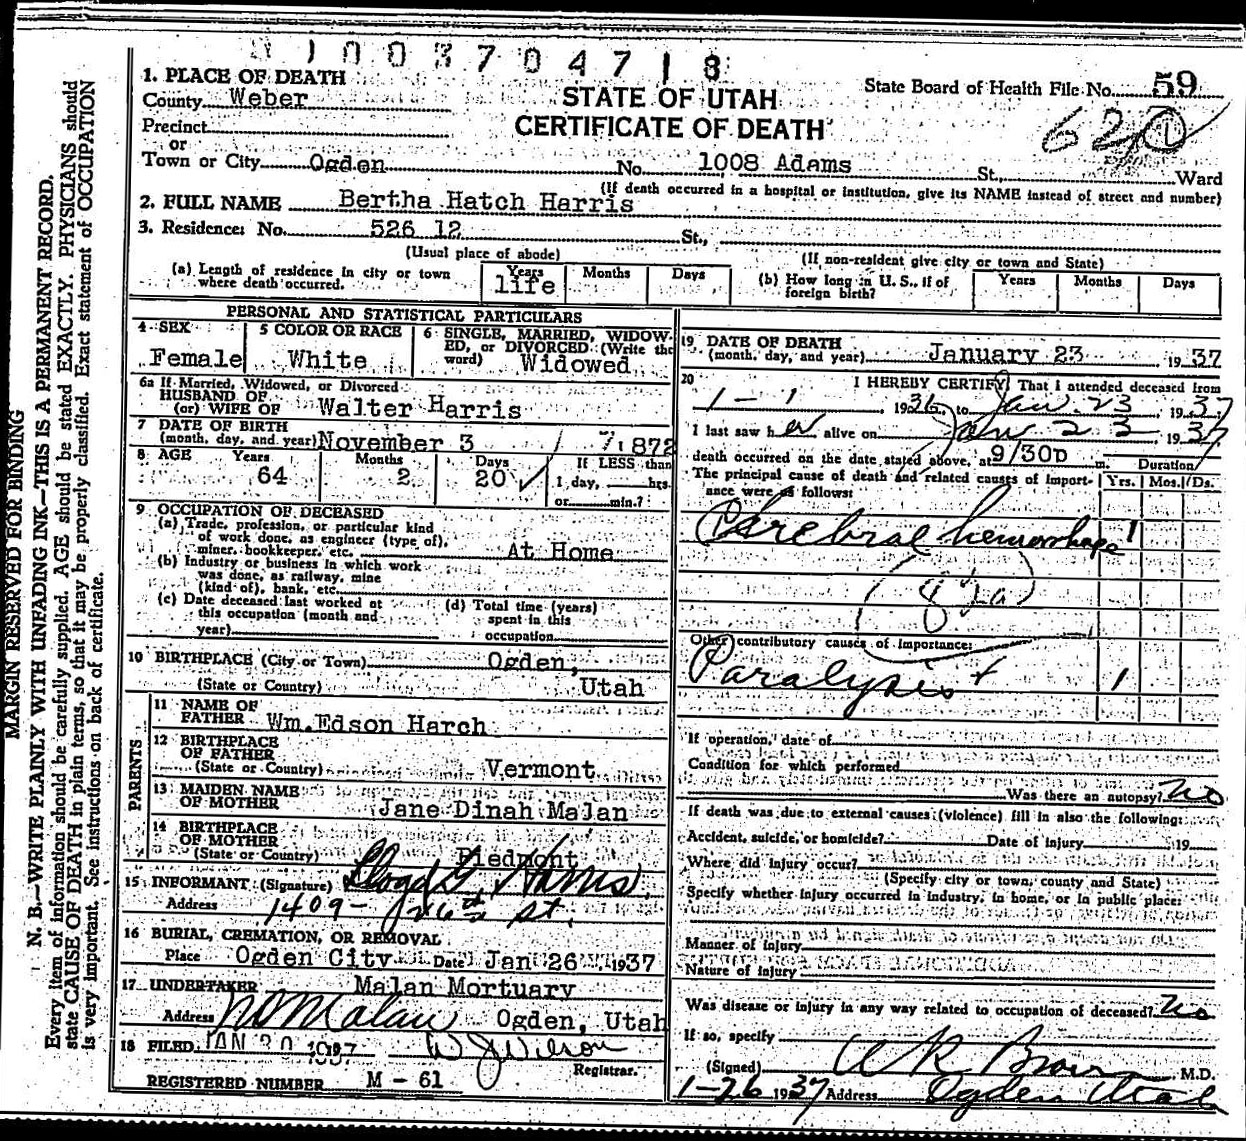 1003704718
1. PLACE OF DEATH
County Weber
Precinct
or
Town or City Ogden No. 1008 Adams St., Ward
STATE OF UTAH
CERTIFICATE OF DEATH
State Board of Health File No. 59
62
(If death occurred in a hospital or institution, give its NAME instead of street and number)
2. FULL NAME Bertha Hatch Harris
3. Residence: No. 526 12 St.,
(Usual place of abode) (If non-resident give city or town and State)
(a) Length of residence in city or town where death occurred. Years life Months Days
(b) How long in U. S., if of foreign birth? Years Months Days
PERSONAL AND STATISTICAL PARTICULARS
4 SEX Female
5 COLOR OR RACE White
6 SINGLE, MARRIED, WIDOWED, or DIVORCED (Write the word) Widowed
6a If Married, Widowed, or Divorced
HUSBAND OF
(or) WIFE OF Walter Harris
7 DATE OF BIRTH
(month, day, and year) November 3 / 7, 1872
8 AGE Years 64 Months 2 Days 20 ✓ If LESS than
1 day, hrs.
or min.?
9 OCCUPATION OF DECEASED
(a) Trade, profession, or particular kind
of work done, as engineer (type of),
miner, bookkeeper, etc. At Home
(b) Industry or business in which work
was done, as railway, mine
(kind of), bank, etc.
(c) Date deceased last worked at
this occupation (month and
year)
(d) Total time (years)
spent in this
occupation
10 BIRTHPLACE (City or Town) Ogden,
(State or Country) Utah
PARENTS
11 NAME OF
FATHER Wm. Edson Harch
12 BIRTHPLACE
OF FATHER
(State or Country) Vermont
13 MAIDEN NAME
OF MOTHER Jane Dinah Malan
14 BIRTHPLACE
OF MOTHER
(State or Country) Piedmont
15 INFORMANT (Signature) Lloyd G. Harris
Address 1409 - 26th St.
16 BURIAL, CREMATION, OR REMOVAL
Place Ogden City Date Jan 26 1937
17 UNDERTAKER Malan Mortuary
Address Malan Ogden, Utah
18 FILED JAN 30 1937 W J Wilson
Registrar.
REGISTERED NUMBER M - 61
19 DATE OF DEATH
(month, day, and year) January 23 1937
20 I HEREBY CERTIFY That I attended deceased from
1 - 1, 1936, to Jan. 23, 1937
I last saw her alive on Jan 23, 1937
death occurred on the date stated above, at 9/30p m.
The principal cause of death and related causes of importance were as follows:
Duration
Yrs. Mos. Ds.
Cerebral hemorrhage 1
(82a)
Other contributory causes of importance:
Paralysis + 1
If operation, date of
Condition for which performed
Was there an autopsy? No
If death was due to external causes (violence) fill in also the following:
Accident, suicide, or homicide? Date of injury 19
Where did injury occur?
(Specify city or town, county and State)
Specify whether injury occurred in industry, in home, or in public place:
Manner of injury
Nature of injury
Was disease or injury in any way related to occupation of deceased? No
If so, specify
(Signed) W R Brown M.D.
1-26 1937 Address Ogden Utah
MARGIN RESERVED FOR BINDING
N. B.—WRITE PLAINLY WITH UNFADING INK—THIS IS A PERMANENT RECORD.
Every item of information should be carefully supplied. AGE should be stated EXACTLY. PHYSICIANS should
state CAUSE OF DEATH in plain terms, so that it may be properly classified. Exact statement of OCCUPATION
is very important. See instructions on back of certificate.